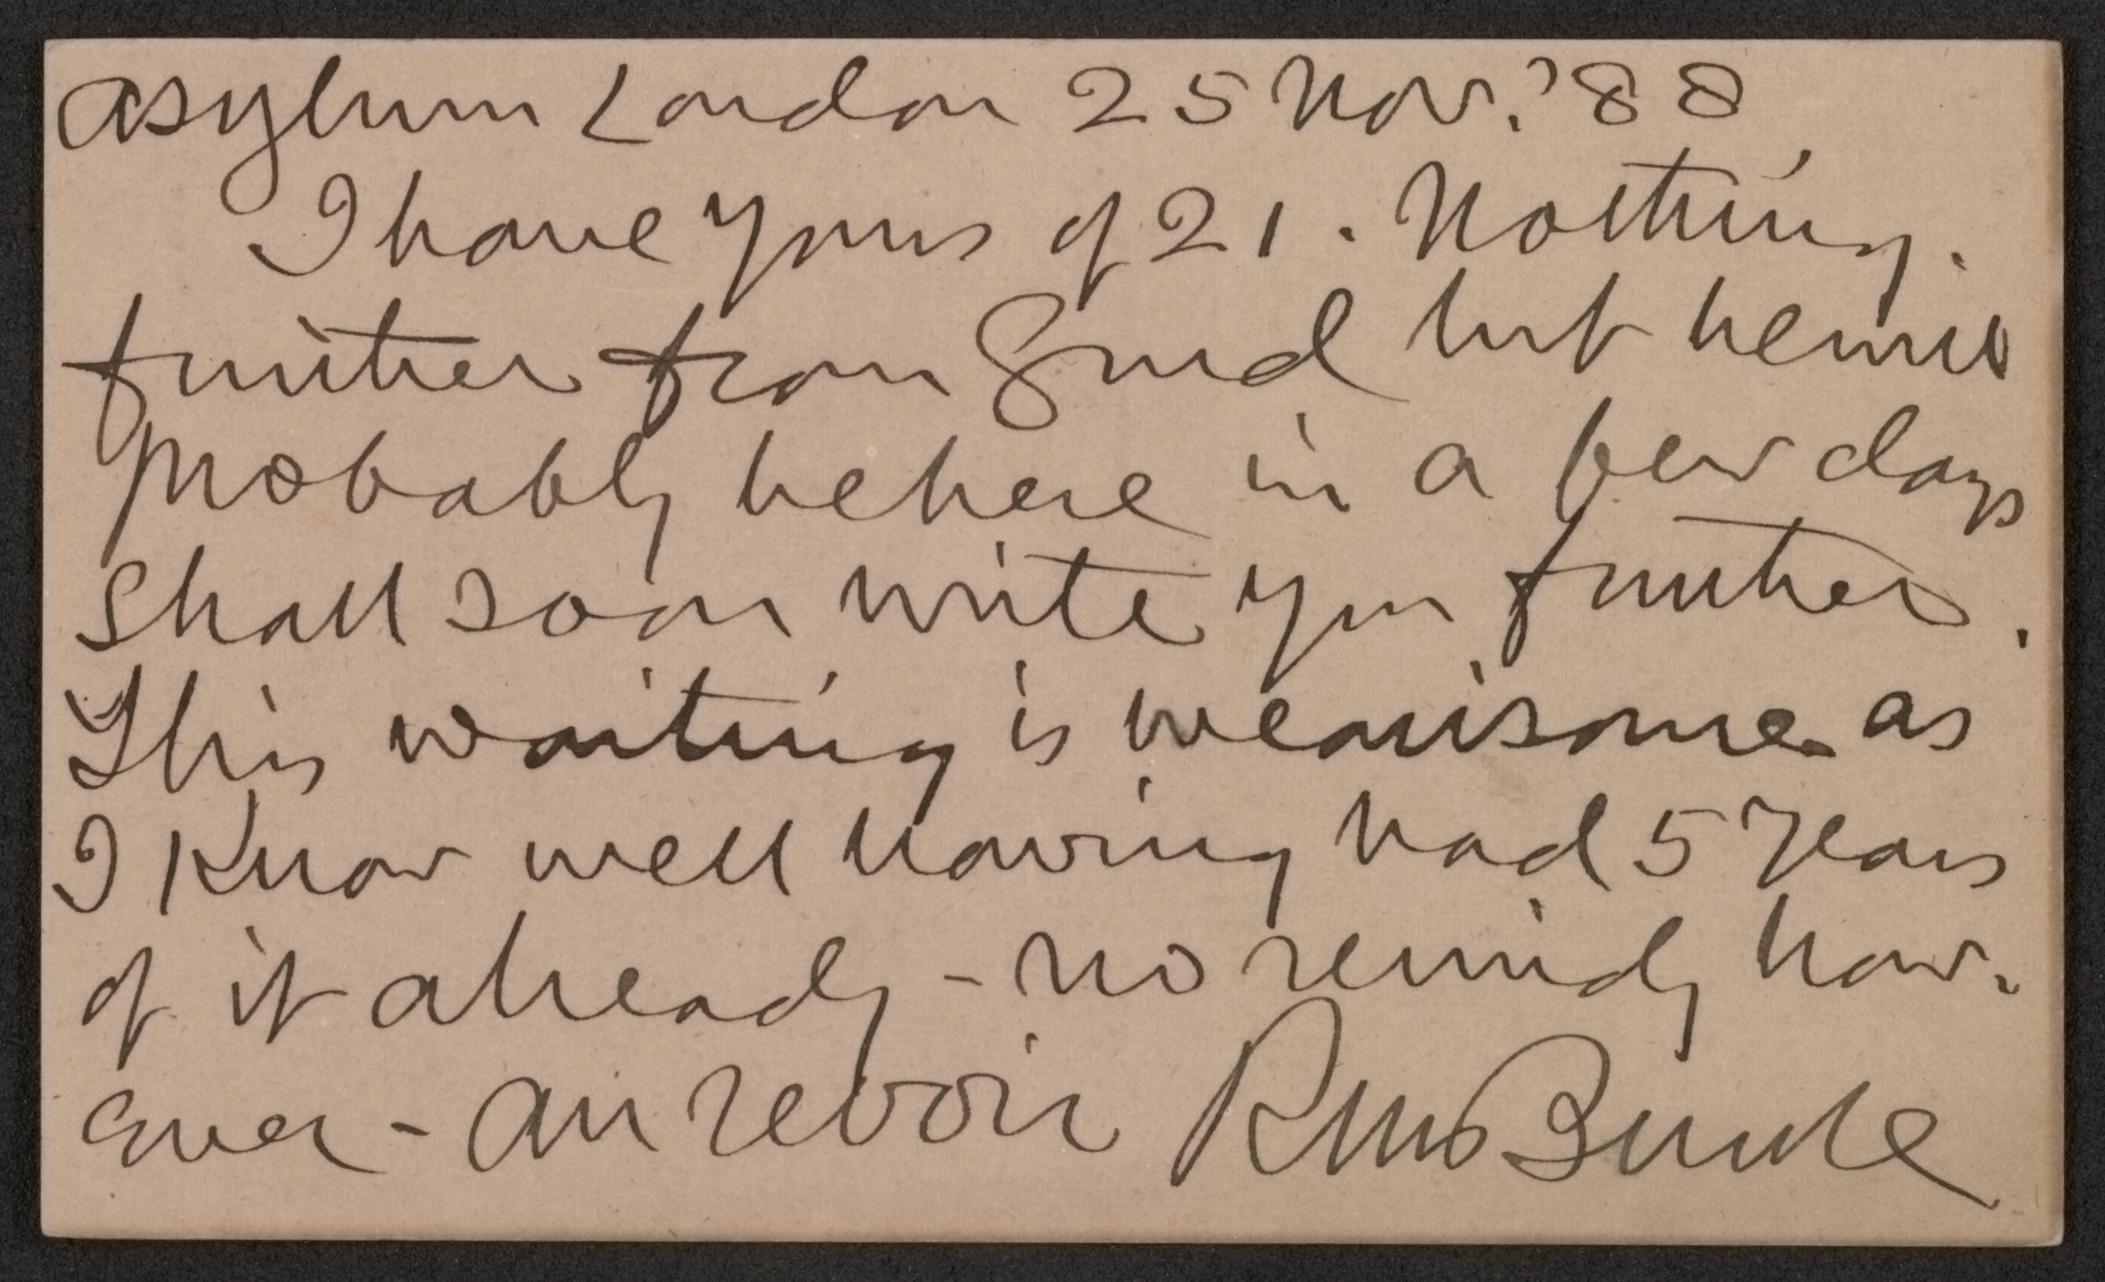 Asylum London 25 Nov. '88
I have yours of 21. Nothing
further from Gurd but he will
probably be here in a few days
Shall soon write you further.
This waiting is wearisome as
I know well having had 5 years
of it already - no remidy how-
ever - au revoir RM Bucke